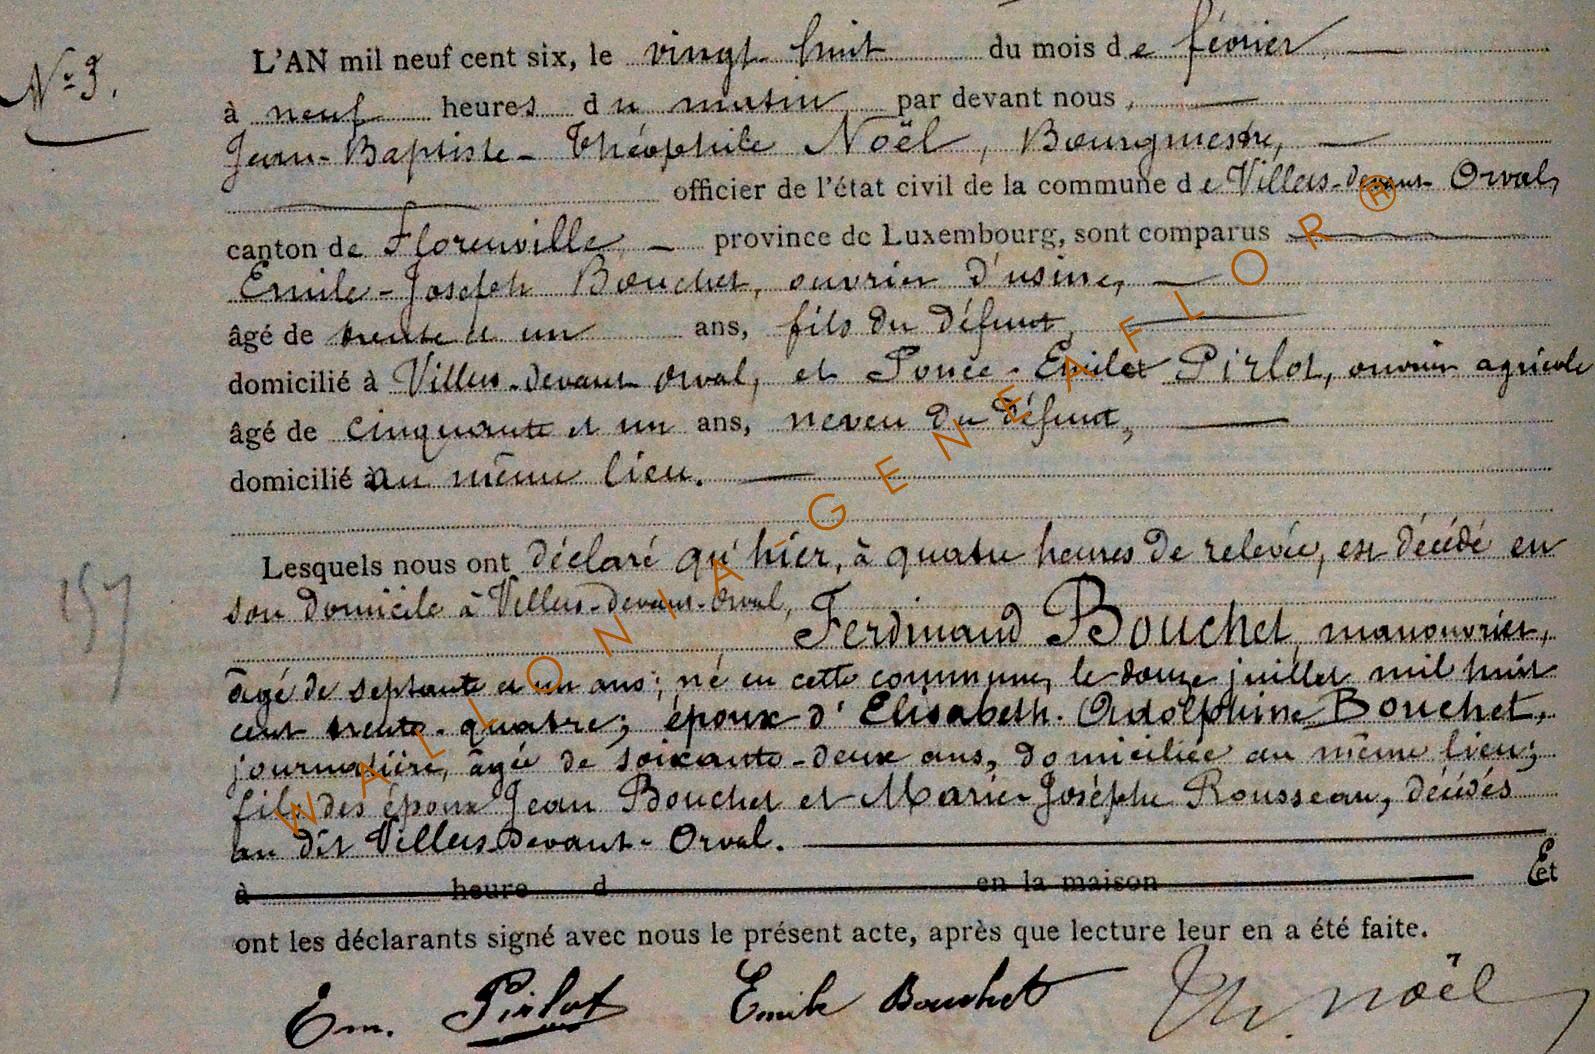 N° 3.
L'AN mil neuf cent six, le vingt huit du mois de février,
à neuf heures du matin par devant nous,
Jean-Baptiste-Théophile Noël, Bourgmestre,
officier de l'état civil de la commune de Villers-devant-Orval,
canton de Florenville province de Luxembourg, sont comparus
Emile-Joseph Bouchet, ouvrier d'usine,
âgé de trente et un ans, fils du défunt,
domicilié à Villers-devant-Orval, et Emile Pirlot, ouvrier agricole
âgé de cinquante et un ans, neveu du défunt,
domicilié au même lieu.
Lesquels nous ont déclaré qu'hier, à quatre heures de relevée, est décédé en
son domicile à Villers-devant-Orval, Ferdinand Bouchet, manouvrier,
âgé de septante et un ans; né en cette commune, le douze juillet mil huit
cent trente-quatre; époux d'Elisabeth-Adolphine Bouchet,
journalière, âgée de soixante-deux ans, domiciliée au même lieu;
fils des époux Jean Bouchet et Marie-Josèphe Rousseau, décédés
au dit Villers-Devant-Orval.
à heure d en la maison Et
ont les déclarants signé avec nous le présent acte, après que lecture leur en a été faite.
Em. Pirlot Emile Bouchet Th. Noël
157
WALLONIA-GENEAFLOR®